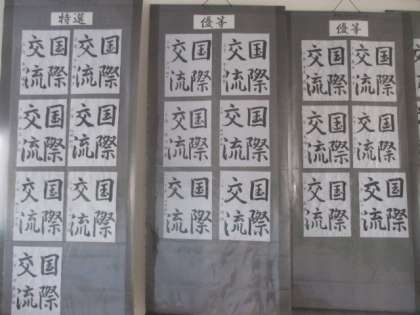 特選
国際
交流
国際
交流
国際
交流
国際
交流
国際
交流
国際
交流
国際
交流
優等
国際
交流
国際
交流
国際
交流
国際
交流
国際
交流
国際
交流
優等
国際
交流
国際
交流
国際
交流
国際
交流
国際
交流
国際
交流